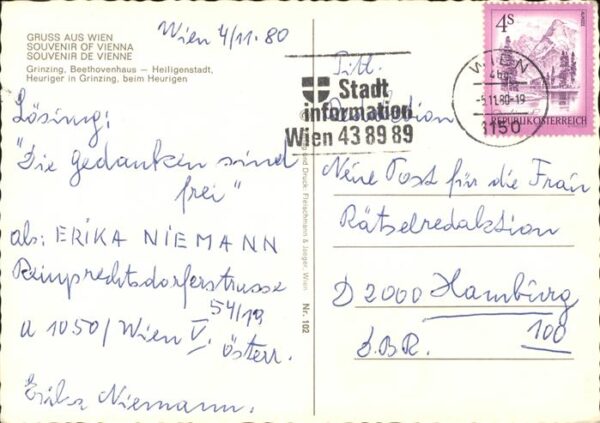 GRUSS AUS WIEN
SOUVENIR OF VIENNA
SOUVENIR DE VIENNE
Grinzing, Beethovenhaus — Heiligenstadt,
Heuriger in Grinzing, beim Heurigen
Wien 4/11.80
Lösing:
"Die Gedanken sind
frei"
abs: ERIKA NIEMANN
Reinprechtsdorferstrasse
54/19
A 1050/Wien V.
Österr.
Erika Niemann.
und Druck: Fleischmann & Jaeger, Wien
Nr. 102
Stadt
information
Wien 43 89 89
WIEN
-5.11.80-19
1150
4S
REPUBLIK ÖSTERREICH
Titl.
Neue Post für die Frau
Rätselredaktion
D 2000 Hamburg
100
D.B.R.